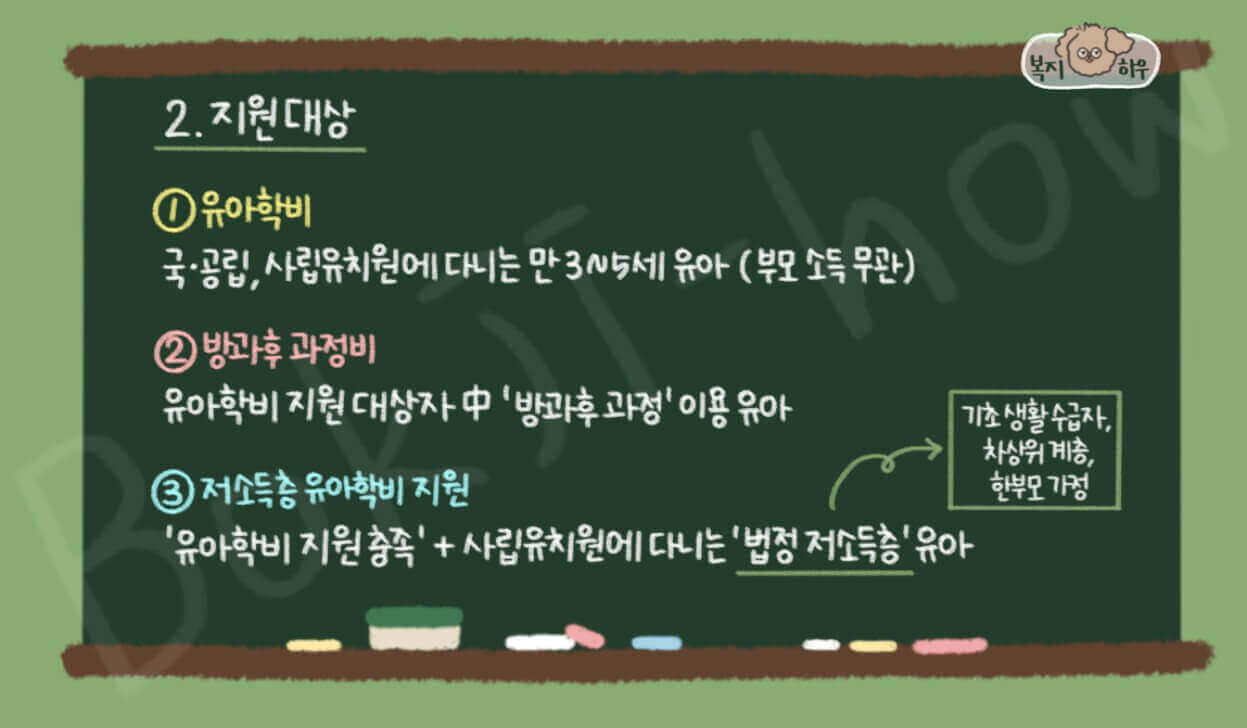 복지 하우
2. 지원 대상
① 유아학비
국·공립, 사립유치원에 다니는 만 3~5세 유아 (부모 소득 무관)
② 방과후 과정비
유아학비 지원 대상자 中 '방과후 과정' 이용 유아
기초 생활 수급자,
차상위 계층,
한부모 가정
③ 저소득층 유아학비 지원
'유아학비 지원 충족' + 사립유치원에 다니는 '법정 저소득층' 유아
Bukji-how